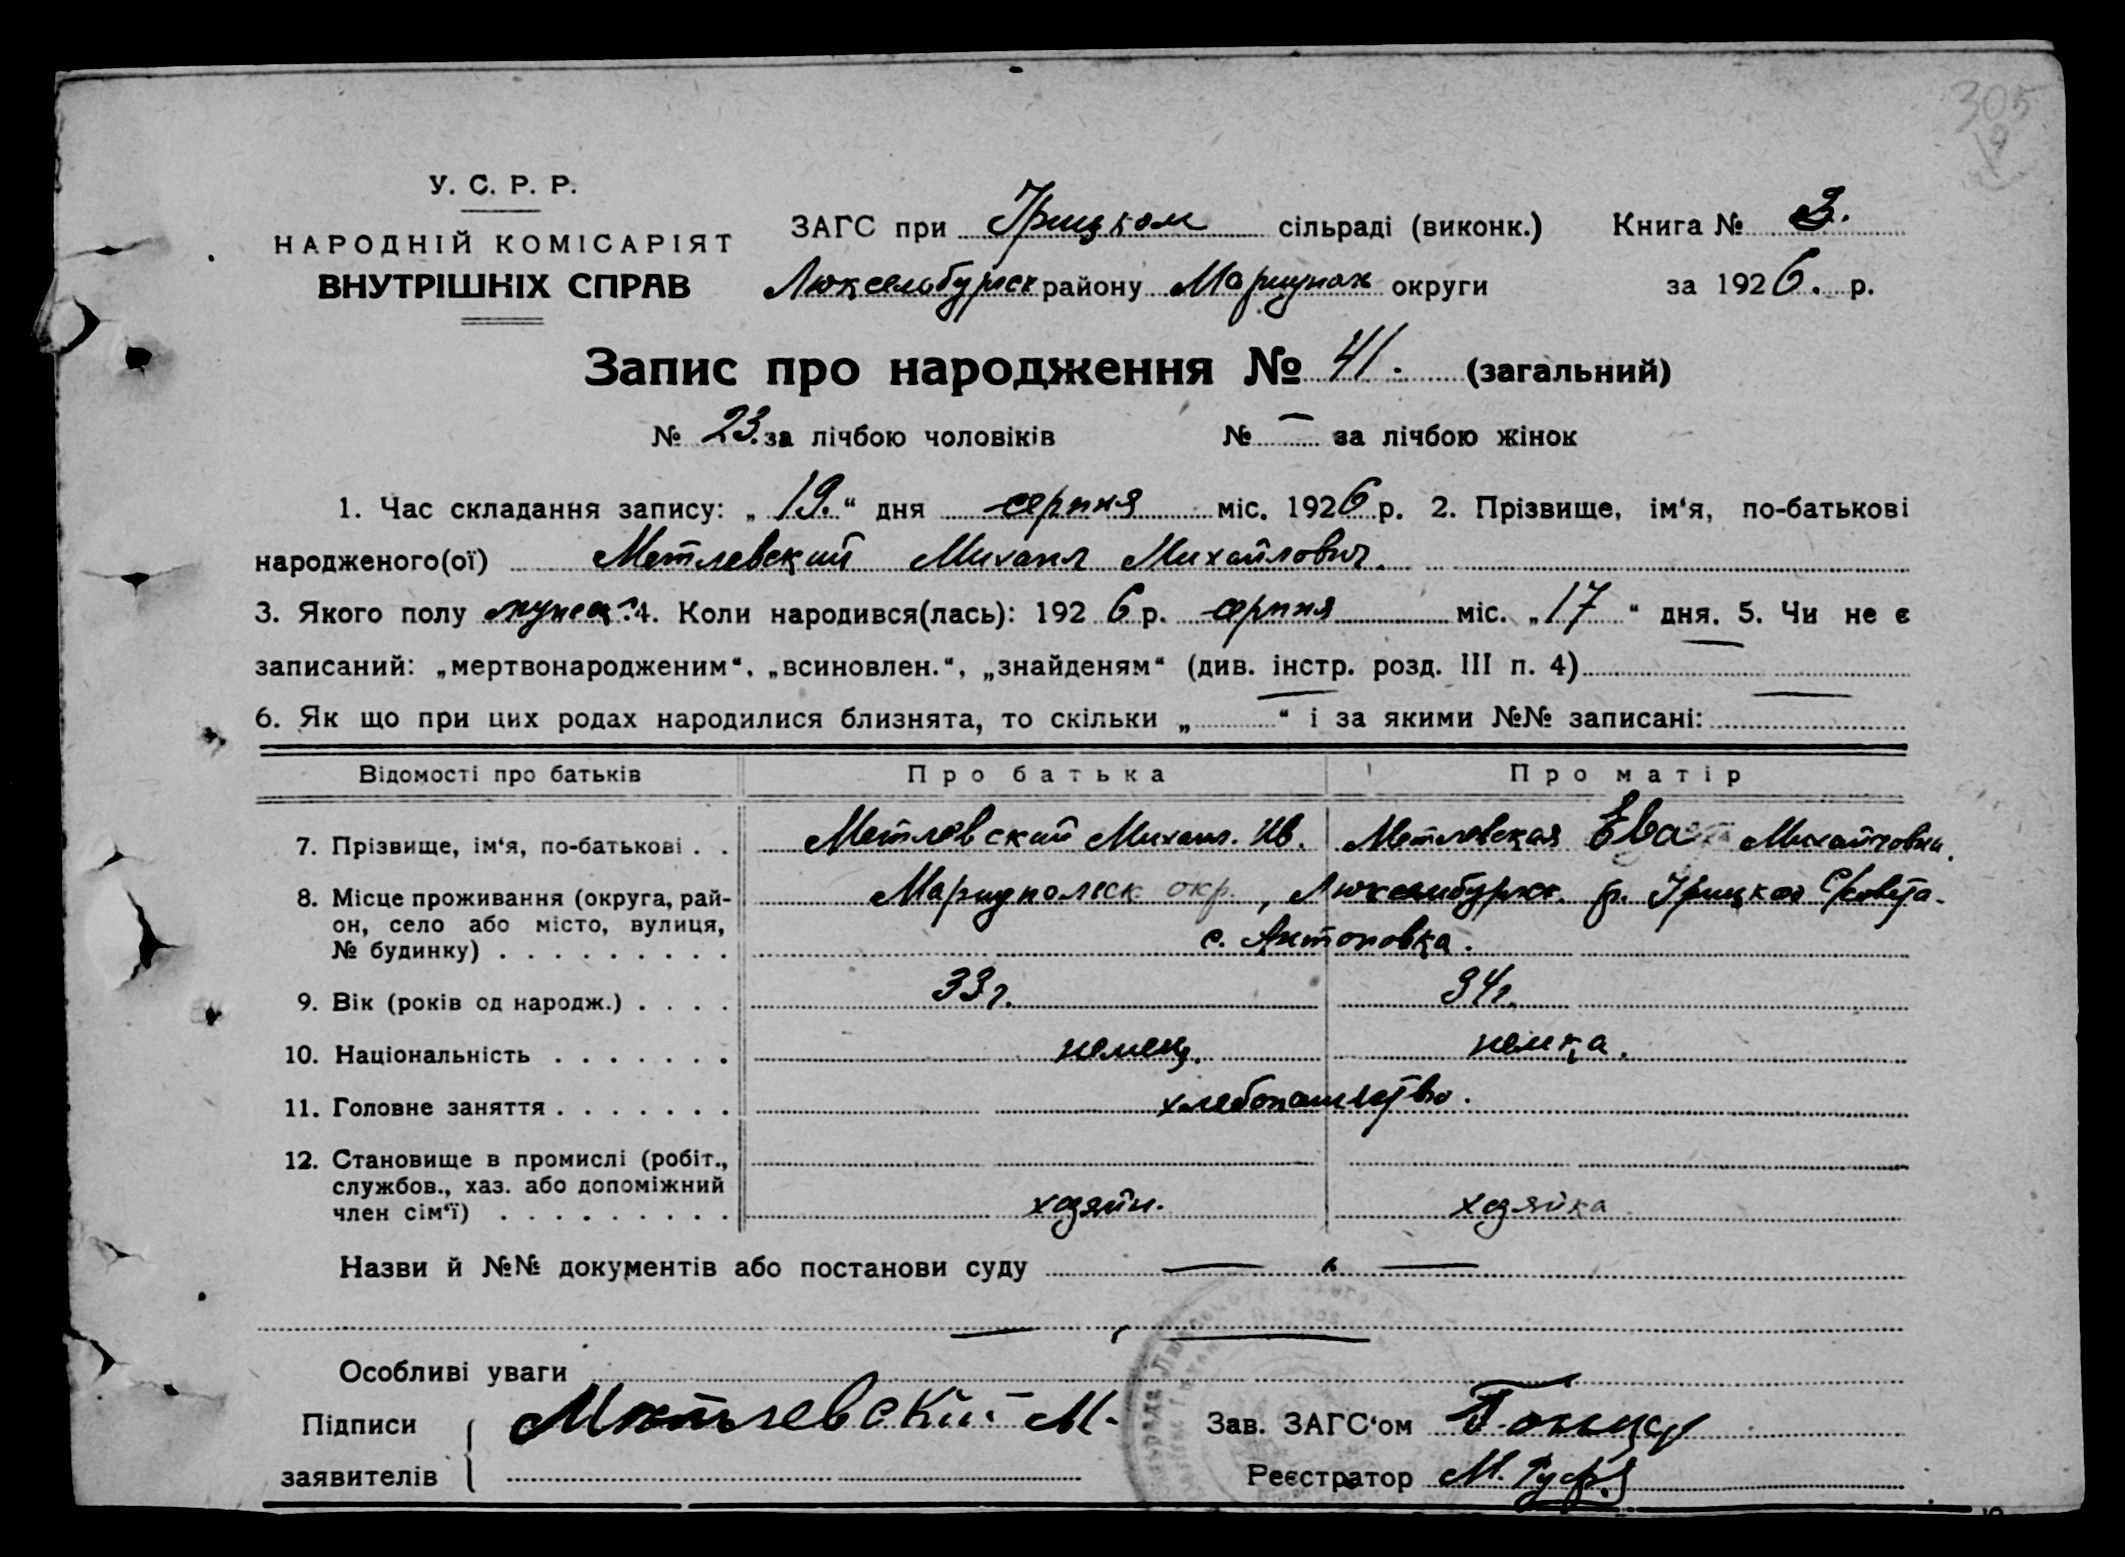 305
У. С. Р. Р.
НАРОДНІЙ КОМІСАРІЯТ
ВНУТРІШНІХ СПРАВ
ЗАГС при Грицком сільраді (виконк.) Книга № 3.
Люксембургск району Мариупол округи за 1926. р.
Запис про народження № 41. (загальний)
№ 23. за лічбою чоловіків № — за лічбою жінок
1. Час складання запису: „19.“ дня серпня міс. 1926 р. 2. Прізвище, ім‘я, по-батькові
народженого(ої) Метлевский Михаил Михайлович.
3. Якого полу мужск. 4. Коли народився(лась): 1926 р. серпня міс. „17“ дня. 5. Чи не є
записаний: „мертвонародженим“, „всиновлен.“, „знайденям“ (див. інстр. розд. III п. 4) —
6. Як що при цих родах народилися близнята, то скільки „—“ і за якими №№ записані: —
Відомості про батьків Про батька Про матір
7. Прізвище, ім‘я, по-батькові . . Метлевский Михаил. Ив. Метлевская Ева Михайловна.
8. Місце проживання (округа, рай- Мариупольск. окр., Люксембургск. р. Грицкого С/совета.
он, село або місто, вулиця, с. Антоновка.
№ будинку) . . . . . . . . .
9. Вік (років од народж.) . . . . 33 г. 34 г.
10. Національність . . . . . . . немец. немка.
11. Головне заняття . . . . . . . хлебопашество.
12. Становище в промислі (робіт.,
службов., хаз. або допоміжний
член сім‘ї) . . . . . . . . . хозяин. хозяйка
Назви й №№ документів або постанови суду — " —
Особливі уваги
Підписи Метлевский М. Зав. ЗАГС‘ом
заявителів Реєстратор М.